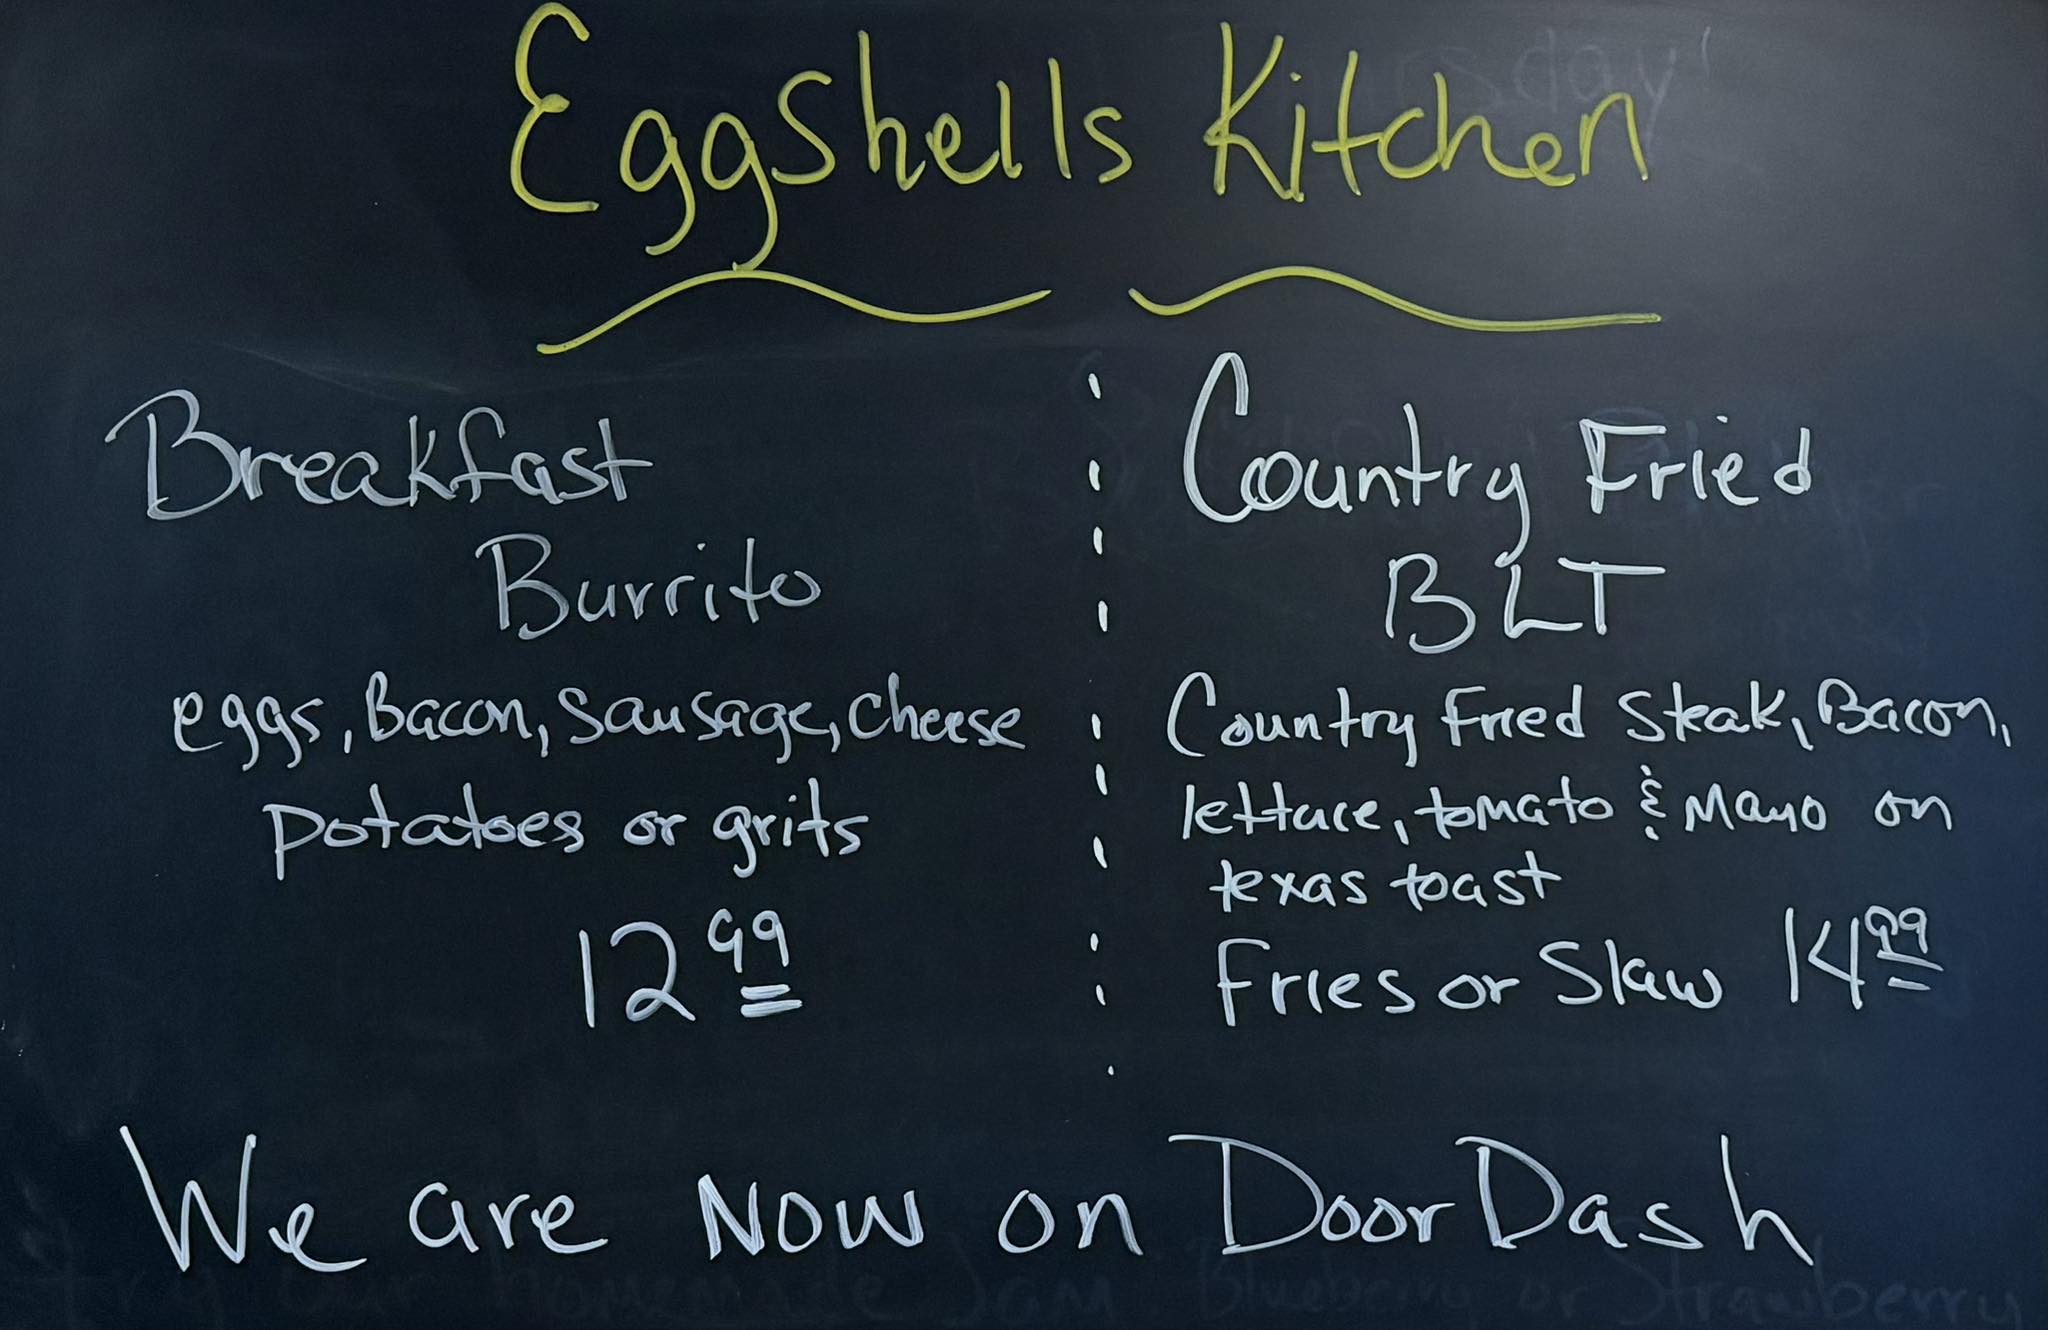 Eggshells Kitchen
Breakfast
Burrito
eggs, Bacon, Sausage, Cheese
potatoes or grits
12 99
Country Fried
BLT
Country Fried Steak, Bacon,
lettuce, tomato & Mayo on
texas toast
Fries or Slaw 14 99
We are Now on DoorDash
Try our homemade Jam Blueberry or Strawberry